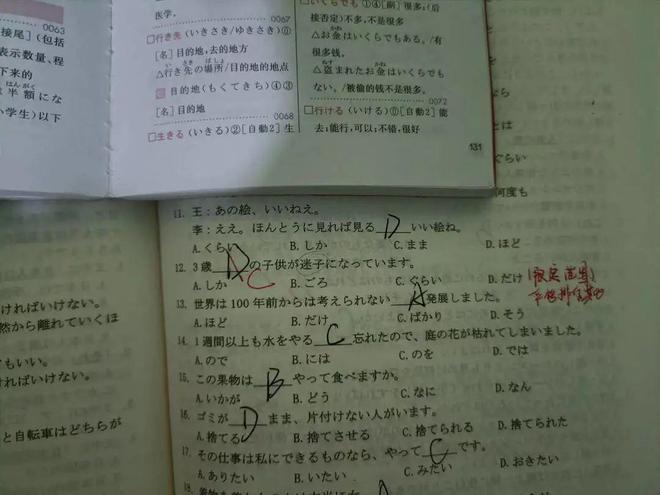 0063
接尾](包括
表示数量、程
下来的
半額にな
小学生)以下
医学。
0067
□行き先(いきさき/ゆきさき)⓪
[名]目的地,去的地方
△行き先の場所/目的地的地点
目的地(もくてきち)④③
[名]目的地
0068
□生きる(いきる)②[自動2]生
□いくらでも①④[副]很多;(后
接否定)不多,不是很多
△お金はいくらでもある。/有
很多钱。
△盗まれたお金はいくらでも
ない。/被偷的钱不是很多。
0072
□行ける(いける)⓪[自動2]能
去;能行,可以;不错,很好
131
11. 王:あの絵、いいねえ。
李:ええ。ほんとうに見れば見る D いい絵ね。
A.くらい B.しか C.まま D.ほど
12. 3歳 D C の子供が迷子になっています。
A.しか B.ごろ C.ぐらい D.だけ
13. 世界は100年前からは考えられない A 発展しました。
A.ほど B.だけ C.ばかり D.そう
14. 1週間以上も水をやる C 忘れたので、庭の花が枯れてしまいました。
A.ので B.には C.のを D.では
15. この果物は B やって食べますか。
A.いかが B.どう C.なに D.なん
16. ゴミが D まま、片付けない人がいます。
A.捨てる B.捨てさせる C.捨てられる D.捨てられた
17. その仕事は私にできるものなら、やって C です。
A.ありたい B.いたい C.みたい D.おきたい
18.
A
ければいけない。
然から離れていくほ
もいい。
ければいけない。
と自転車はどちらが
とは
ぐらい
何度も